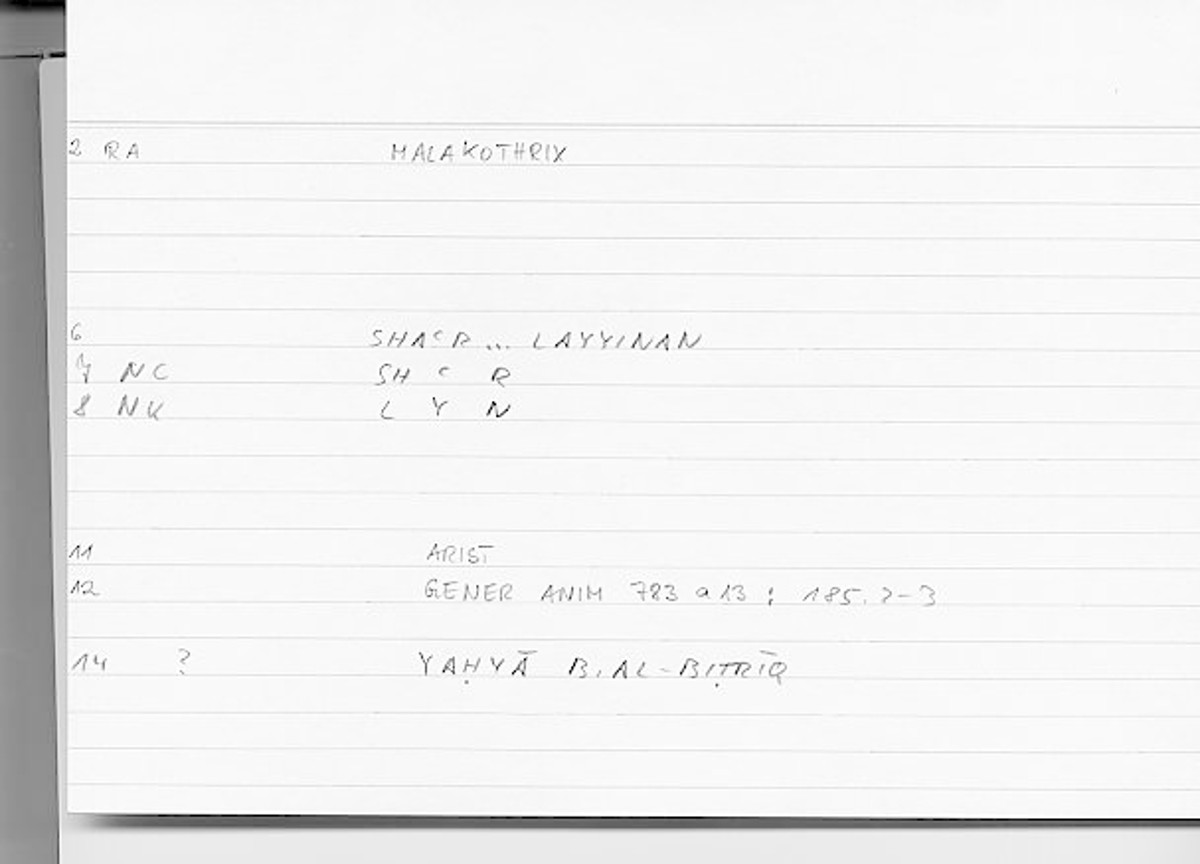 2 RA MALAKOTHRIX
6 SHAᶜR ... LAYYINAN
7 NC SH ᶜ R
8 NK L Y N
11 ARIST
12 GENER ANIM 783 a 13 ; 185. 2-3
14 ? YAḤYĀ B. AL-BIṬRĪQ